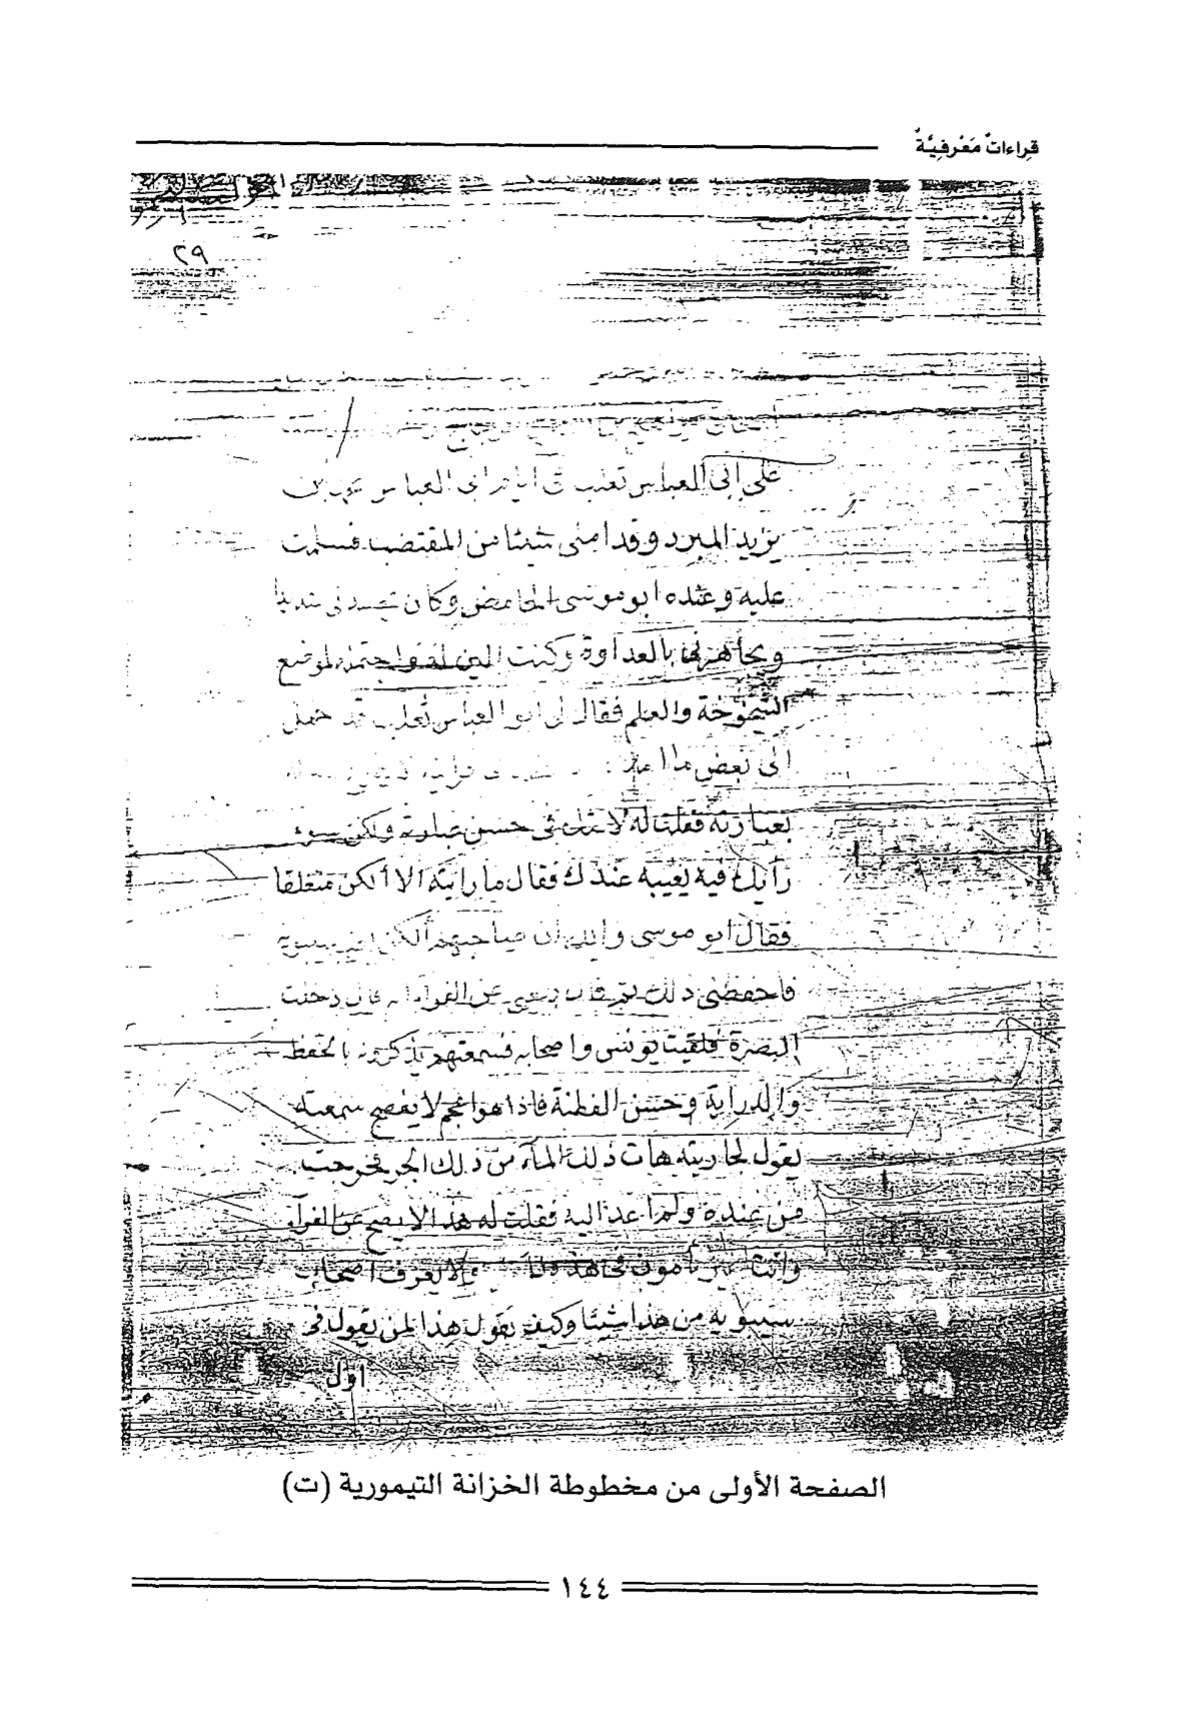 قِراءاتٌ مَعْرفِيَّةٌ
٢٩
على ابى العباس ثعلب فى ايام ابى العباس محمد بن
يزيد المبرد وقد املى شيئا من المقتضب فسلمت
عليه وعنده ابو موسى الحامض وكان يحسدنى شديدا
ويجاهرنى بالعداوة وكنت الين له واحتمله لموضع
الشيخوخة والعلم فقال لى ابو العباس ثعلب قد حمل
الى بعض ما املاه
بعبارته فقلت له لا فى حسن عبارته ولكن سوء
رأيك فيه يعيبه عندك فقال ما رايته الا ألكن متغلقا
فقال ابو موسى والله ان صاحبهم ألكن يعنى سيبويه
فاحفظنى ذلك ثم قال بلغنى عن الفرآء انه قال دخلت
البصرة فلقيت يونس واصحابه فسمعتهم يذكرونه بالحفظ
والدراية وحسن الفطنة فاذا هو اعجم لا يفصح سمعته
يقول لجاريته هات ذلك المآء من ذلك الجر فخرجت
من عنده ولم اعد اليه فقلت له هذا لا يصح عن الفرآء
وانت غير مأمون فى هذه ولا يعرف اصحاب
سيبويه من هذا شيئا وكيف يقول هذا لمن يقول فى
اول
الصفحة الأولى من مخطوطة الخزانة التيمورية (ت)
١٤٤